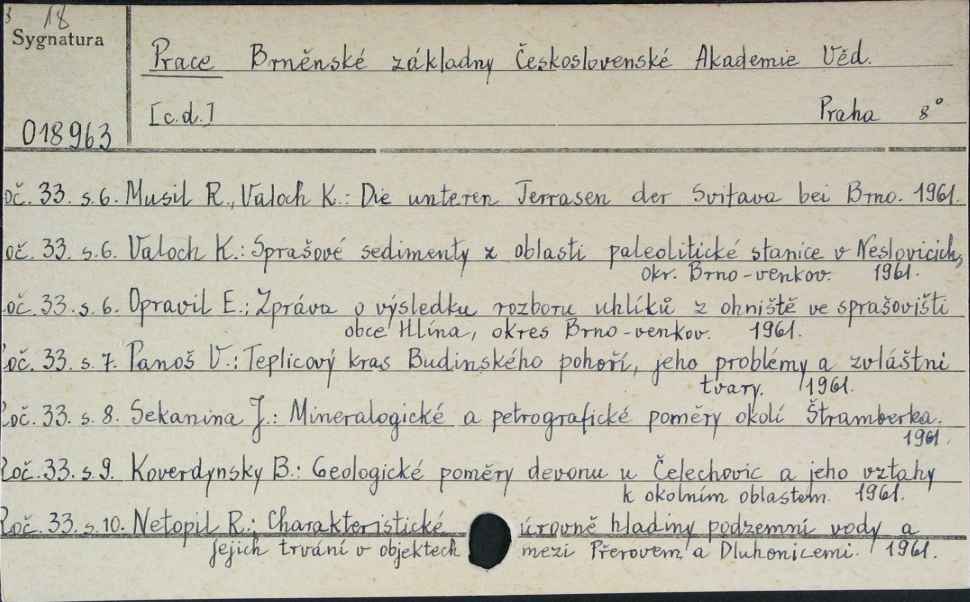 18
Sygnatura
Prace Brněnské základny Československé Akademie Věd.
[c.d.] Praha 8°
018963
oč. 33. s.6. Musil R., Valoch K.: Die unteren Terrasen der Svitava bei Brno. 1961.
oč. 33. s.6. Valoch K.: Sprašové sedimenty z oblasti paleolitické stanice v Neslovicích,
okr. Brno-venkov. 1961.
oč. 33. s.6. Opravil E.: Zpráva o výsledku rozboru uhlíků z ohniště ve sprašovišti
obce Hlína, okres Brno-venkov. 1961.
oč. 33. s. 7. Panoš V.: Teplicový kras Budinského pohoří, jeho problémy a zvláštni
tvary. 1961.
Roč. 33. s. 8. Sekanina J.: Mineralogické a petrografické poměry okolí Štramberka.
1961.
Roč. 33. s. 9. Koverdynsky B.: Geologické poměry devonu u Čelechovic a jeho vztahy
k okolním oblastem. 1961.
Roč. 33. s. 10. Netopil R.: Charakteristické úrovně hladiny podzemní vody a
jejich trvání v objektech mezi Přerovem a Dluhonicemi. 1961.